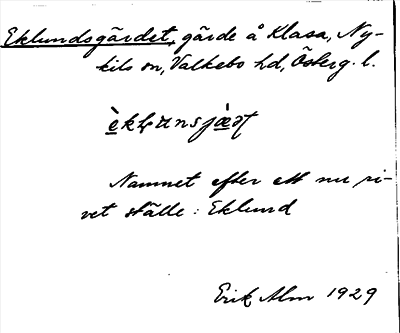 Eklundsgärdet, gärde å Klasa, Ny-
kils sn, Valkebo hd, Österg. l.
Namnet efter ett nu ri-
vet ställe : Eklund
Erik Alm 1929